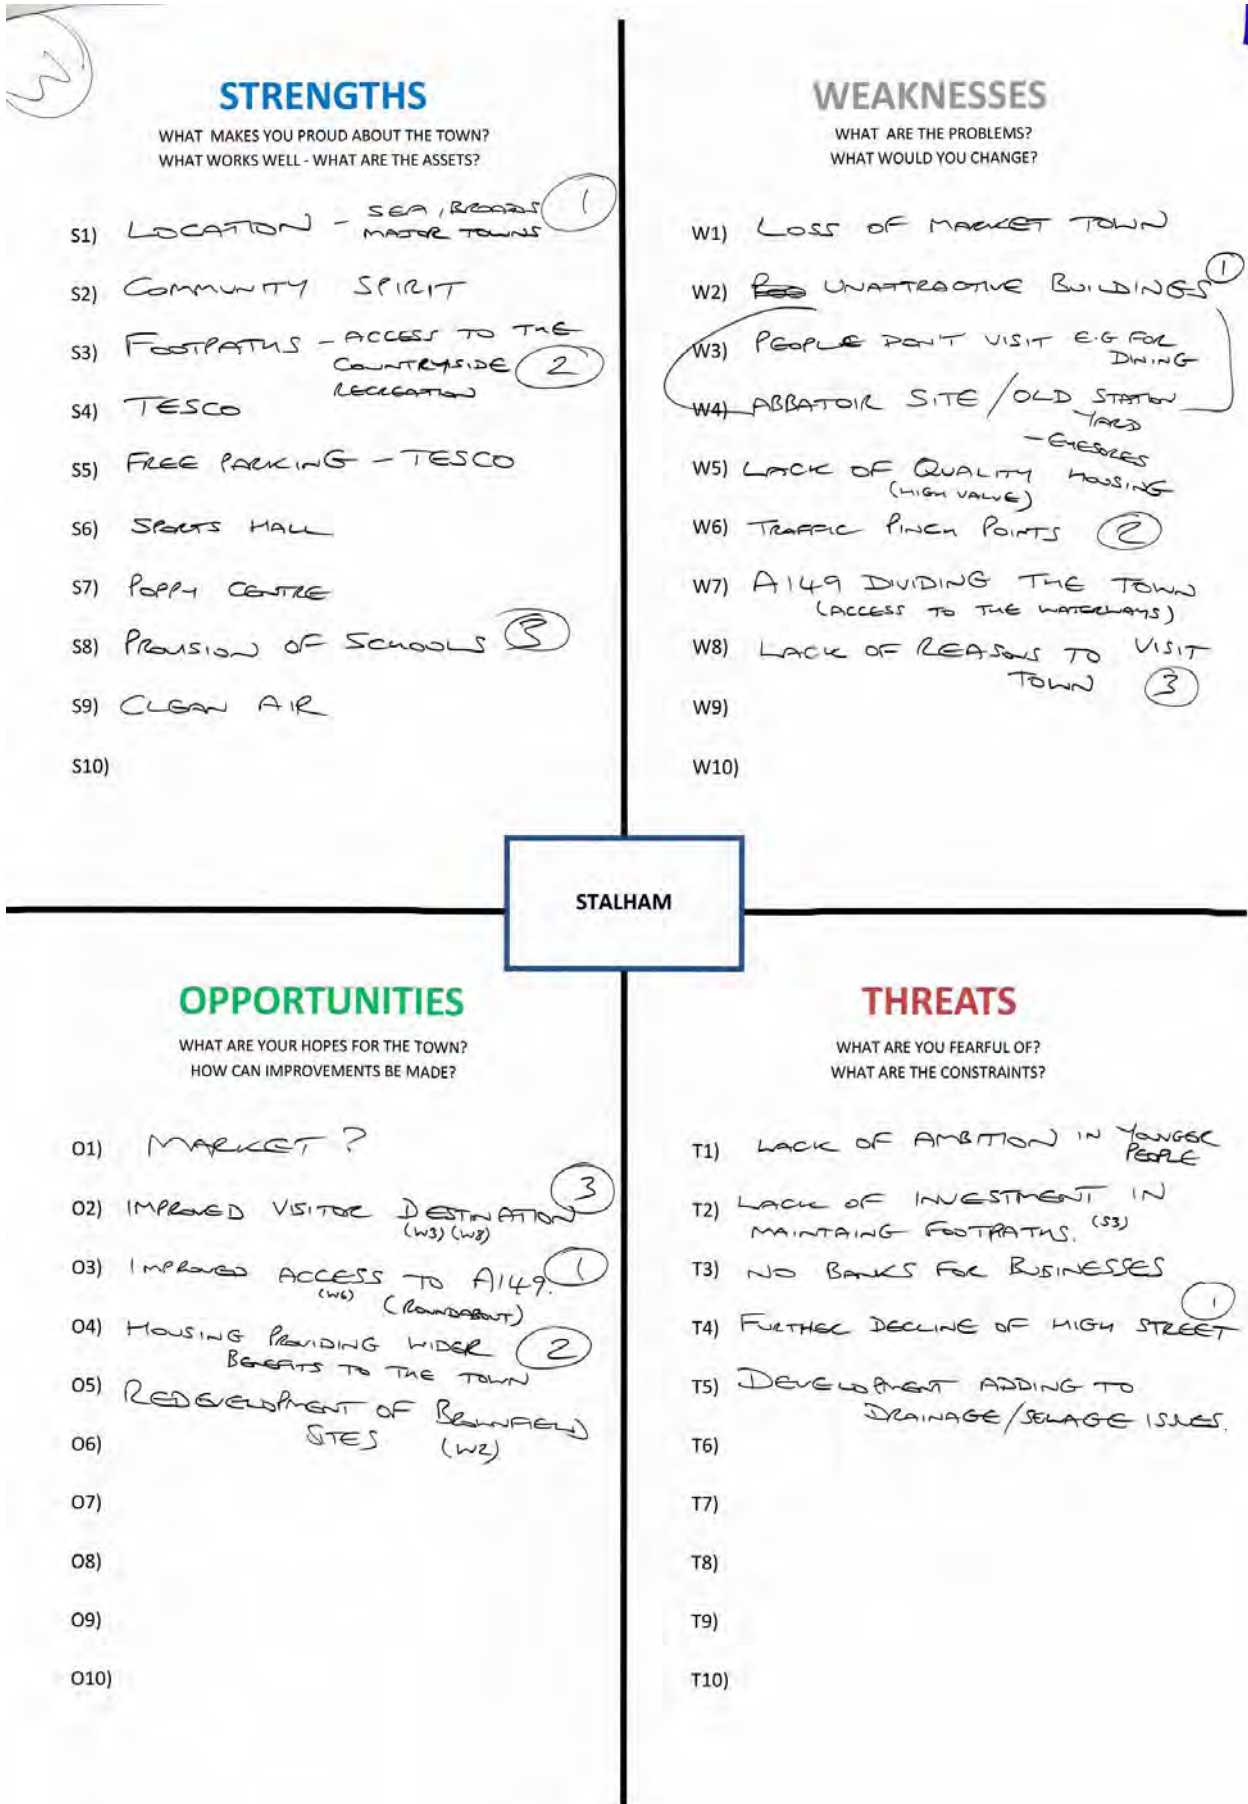 3
STRENGTHS
WHAT MAKES YOU PROUD ABOUT THE TOWN?
WHAT WORKS WELL - WHAT ARE THE ASSETS?
S1) LOCATION - SEA, BROADS 1
MAJOR TOWNS
S2) COMMUNITY SPIRIT
S3) FOOTPATHS - ACCESS TO THE
COUNTRYSIDE 2
RECREATION
S4) TESCO
S5) FREE PARKING - TESCO
S6) SPORTS HALL
S7) POPPY CENTRE
S8) PROVISION OF SCHOOLS 3
S9) CLEAN AIR
S10)
WEAKNESSES
WHAT ARE THE PROBLEMS?
WHAT WOULD YOU CHANGE?
W1) LOSS OF MARKET TOWN
W2) UNATTRACTIVE BUILDINGS 1
W3) PEOPLE DON'T VISIT E.G FOR
DINING
W4) ABBATOIR SITE / OLD STATION
YARD
- EYESORES
W5) LACK OF QUALITY HOUSING
(HIGH VALUE)
W6) TRAFFIC PINCH POINTS 2
W7) A149 DIVIDING THE TOWN
(ACCESS TO THE WATERWAYS)
W8) LACK OF REASONS TO VISIT
TOWN 3
W9)
W10)
STALHAM
OPPORTUNITIES
WHAT ARE YOUR HOPES FOR THE TOWN?
HOW CAN IMPROVEMENTS BE MADE?
O1) MARKET?
O2) IMPROVED VISITOR DESTINATION 3
(W3) (W8)
O3) IMPROVED ACCESS TO A149. 1
(W6) (ROUNDABOUT)
O4) HOUSING PROVIDING WIDER 2
BENEFITS TO THE TOWN
O5) REDEVELOPMENT OF BROWNFIELD
SITES (W2)
O6)
O7)
O8)
O9)
O10)
THREATS
WHAT ARE YOU FEARFUL OF?
WHAT ARE THE CONSTRAINTS?
T1) LACK OF AMBITION IN YOUNGER
PEOPLE
T2) LACK OF INVESTMENT IN
MAINTAING FOOTPATHS. (S3)
T3) NO BANKS FOR BUSINESSES
T4) FURTHER DECLINE OF HIGH STREET 1
T5) DEVELOPMENT ADDING TO
DRAINAGE/SEWAGE ISSUES.
T6)
T7)
T8)
T9)
T10)